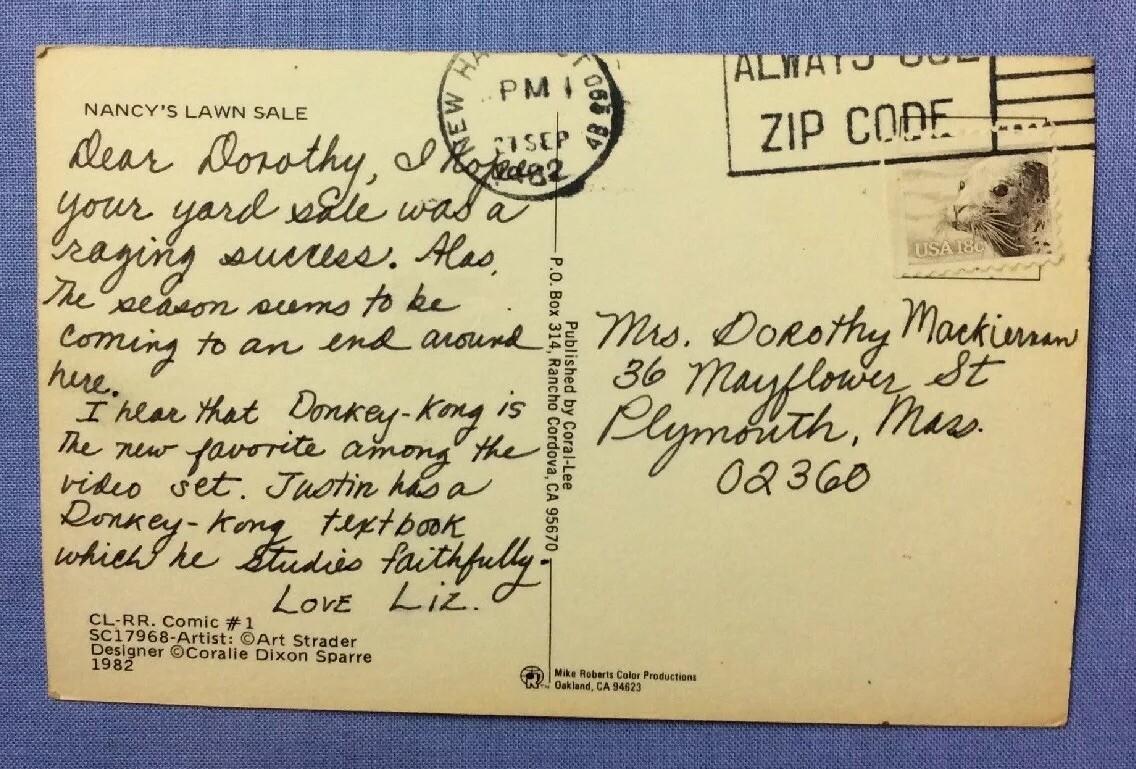 NANCY'S LAWN SALE
Dear Dorothy, I hope
your yard sale was a
raging success. Alas,
The season seems to be
coming to an end around
here.
I hear that Donkey-Kong is
The new favorite among the
video set. Justin has a
Donkey-Kong textbook
which he studies faithfully-
LOVE LIZ.
CL-RR. Comic #1
SC17968-Artist: ©Art Strader
Designer ©Coralie Dixon Sparre
1982
Published by Coral-Lee
P.O. Box 314, Rancho Cordova, CA 95670
Mike Roberts Color Productions
Oakland, CA 94623
NEW
CT 065
PM 1
21 SEP
1982
ALWAYS USE
ZIP CODE
USA 18c
Mrs. Dorothy Mackiernan
36 Mayflower St
Plymouth, Mass.
02360